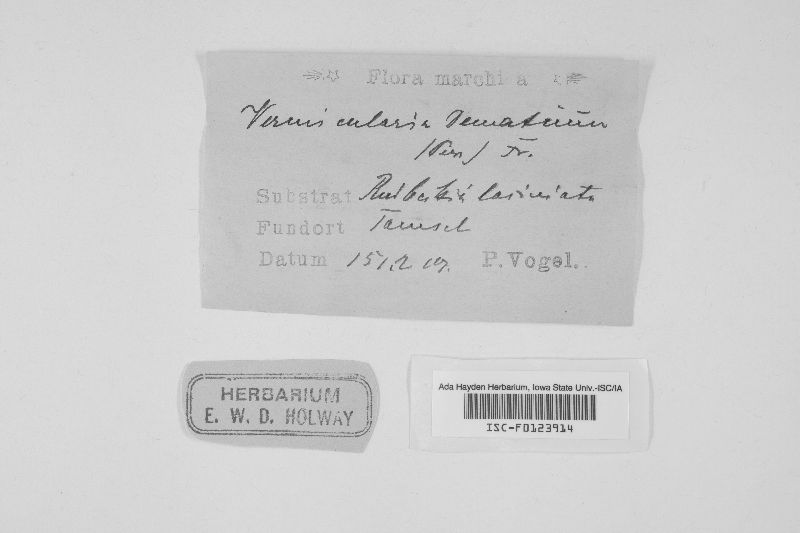 Flora marchica
Vermicularia Dematium
(Pers.) Fr.
Substrat Rudbeckia laciniata
Fundort Tamsel
Datum 15/2 07. P. Vogel.
HERBARIUM
E. W. D. HOLWAY
Ada Hayden Herbarium, Iowa State Univ.-ISC/IA
ISC-F0123914